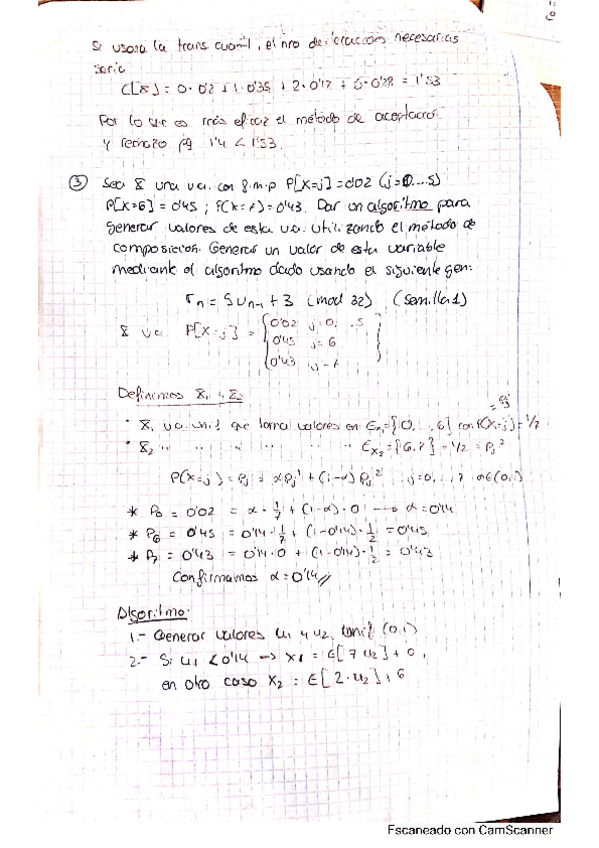 Si usara la trans. cuantil, el nro de iteraciones necesarias
sería
C[X] = 0·0'2 + 1·0'35 + 2·0'17 + 3·0'28 = 1'53
Por lo que es más eficaz el método de aceptación
y rechazo pq 1'4 < 1'53.
③ Sea X una v.a. con f.m.p P[X=j] = 0'02 (j=0....5)
P[X=6] = 0'45 ; P(X=7) = 0'43. Dar un algoritmo para
generar valores de esta v.a. utilizando el método de
composición. Generar un valor de esta variable
mediante el algoritmo dado usando el siguiente gen:
rn = 5 Un-1 + 3 (mod 32) (semilla 1)
X v.a. P[X=j] = { 0'02 j=0, .5
0'45 j=6
0'43 j=7 }
Definimos X1 y X2
· X1 v.a. unif que toma valores en Ex1 = {0,...,6} con P(X=j) = 1/7
· X2 " " " " " " Ex2 = {6,7} = 1/2 = Pj²
P(X=j) = Pj = αPj¹ + (1-α) Pj² ; j=0,...,7 α∈(0,1)
* P0 = 0'02 = α · 1/7 + (1-α) · 0 → α = 0'14
* P6 = 0'45 = 0'14 · 1/7 + (1-0'14) · 1/2 = 0'45
* P7 = 0'43 = 0'14 · 0 + (1-0'14) · 1/2 = 0'43
Confirmamos α = 0'14 //
Algoritmo:
1.- Generar valores u1 y u2, unif (0,1)
2.- Si u1 < 0'14 → x1 = E[7 u2] + 0,
en otro caso X2 = E[2·u2] + 6
Escaneado con CamScanner